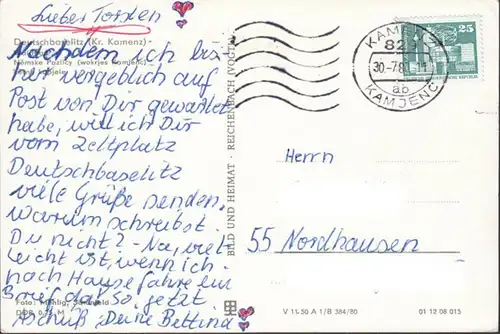 Lieber Torsten
Deutschbaselitz (Kr. Kamenz)
Němske Pazlicy (wokrjes Kamjenc)
Nachdem ich bis
her vergeblich auf
Post von Dir gewartet
habe, will ich Dir
vom Zeltplatz
Deutschbaselitz
viele Grüße senden.
Warum schreibst
Du nicht? - Na, viel
leicht ist, wenn ich
nach Hause fahre ein
Brief da. So, jetzt
Tschüß Deine Bettina
Foto:
DDR 0,25 M
BILD UND HEIMAT · REICHENBACH (VOGTL)
KAMENZ
82
30.-7.8
ab
KAMJENC
25
Herrn
55 Nordhausen
V 11 50 A 1/B 384/80
01 12 08 015